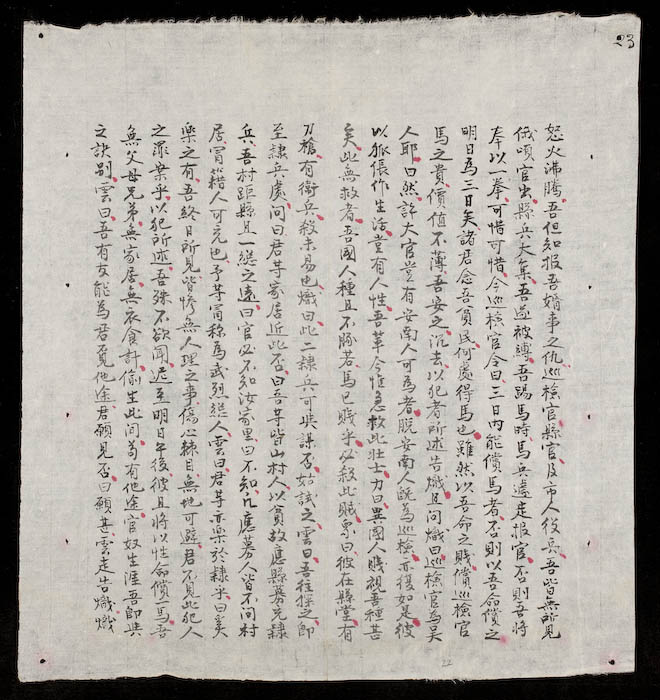 23
怒火沸騰吾但知報吾婚事之仇巡檢官縣官及市人役兵吾皆無所見
俄頃官虫縣兵大集吾遂被縛吾踢馬時馬兵遽走報官否則吾將
奉以一拳可惜可惜今巡檢官令曰三日內能償馬者否則以吾命償之
明日為三日矣諸君念吾貧民何處得馬也雖然以吾命之賤償巡檢官
馬之貴價值不薄吾安之沉去以犯者所述告熾且問熾曰巡檢官為吴
人耶曰然許大官豈有安南人可為者脫安南人既為巡檢亦復如是彼
以狐倀作生活豈有人性吾輩今惟急救此壯士力曰異國人賤視吾種甚
矣此無救者吾國人種且不豚若馬已賤乎必殺此賊衆曰彼在縣堂有
刀槍有衛兵殺未易也熾曰此二隸兵可與謀否姑試之雲曰吾往探之即
至隸兵處問曰君等家居近此否曰吾等皆山村人以貧故應縣募充隸
兵吾村距縣且一總之遠曰官必不知汝家里曰不知凡應募人皆不問村
居冒籍人可充也予等冐称為武烈總人雲曰君等亦樂於隸乎曰奚
樂之有吾終日所見皆慘無人理之事傷心棘目無地可避君不見此犯人
之罪案乎以犯所述吾殊不欲聞遲至明日午後彼且將以性命償馬吾
無父母兄弟無家居無衣食計偷生此間苟有他途官奴生涯吾即與
之訣別雲曰吾有友能為君覓他途君願見否曰願甚雲走告熾熾